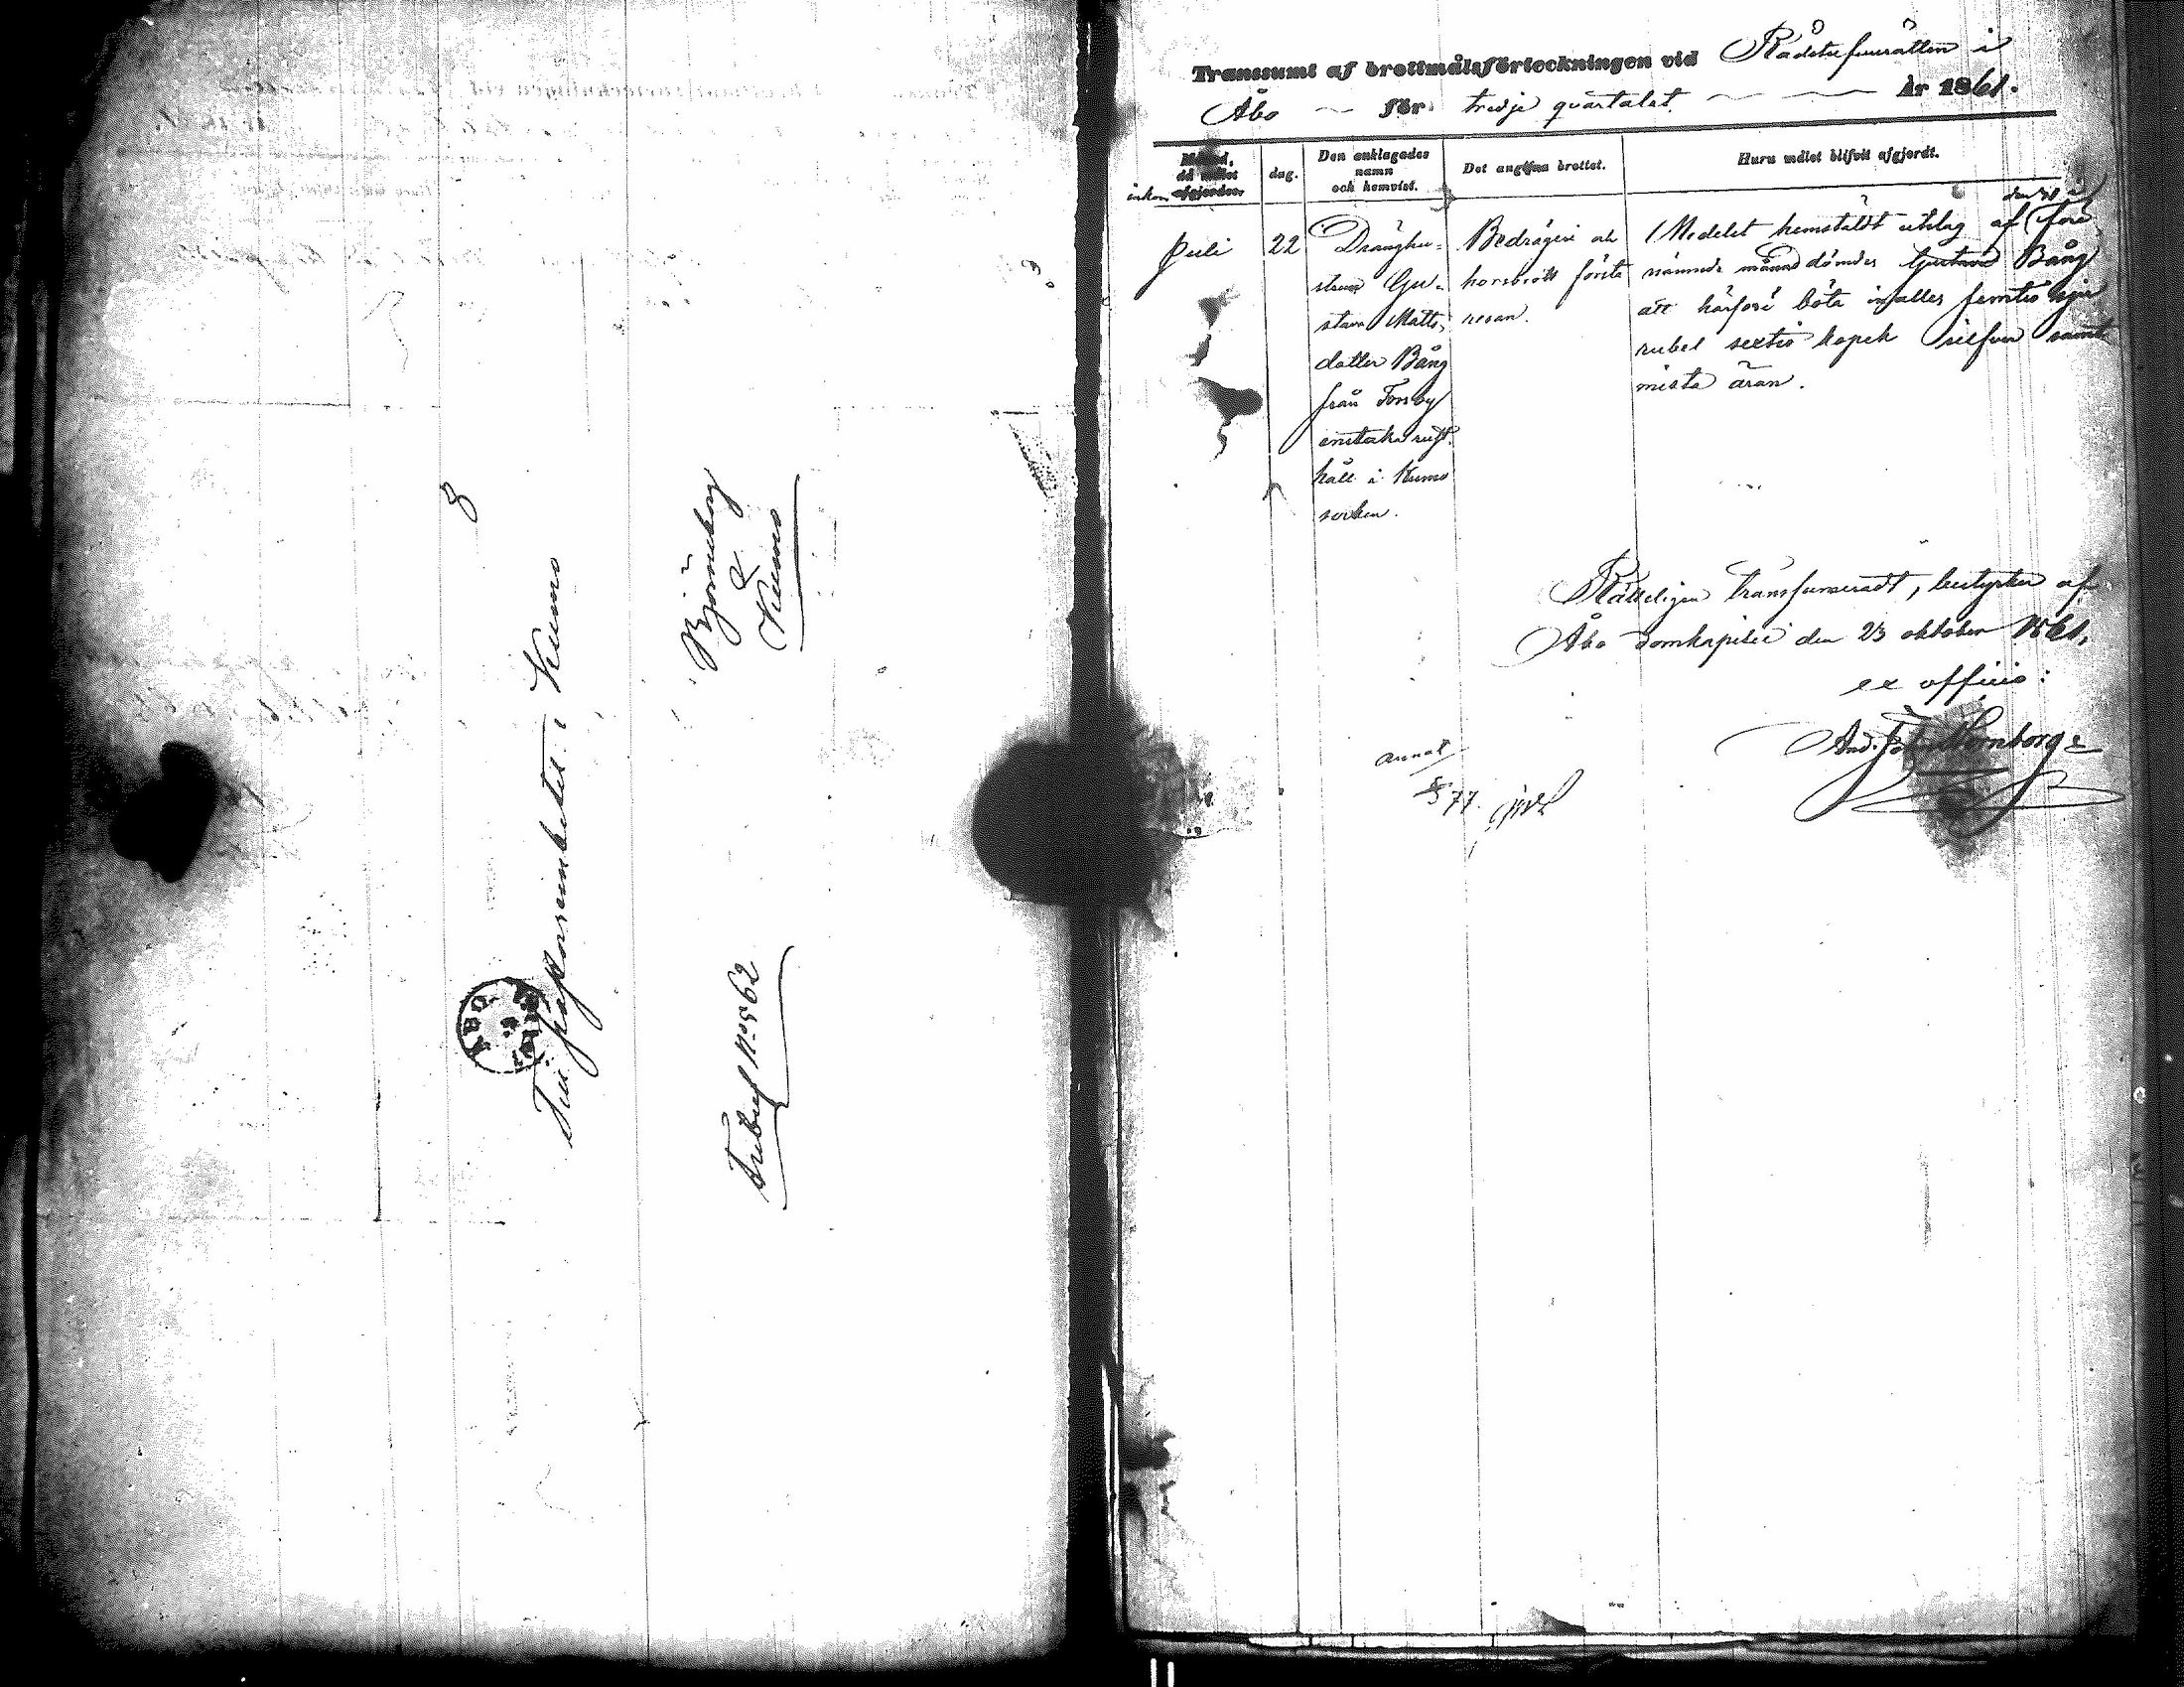 Till Pastorsembetet i Kumo
Björneborg
&
Kumo
Fribref No 562
ÅBO
Transsumt af brottmålsförteckningen vid Rådstufvurätten i
Åbo för tredje quartalet År 1861.
Månad,
då målet
afgjordes.
inkom
dag.
Den anklagades
namn
och hemvist.
Det angifna brottet.
Huru målet blifvit afgjordt.
Juli 22
Dränghu-
strun Gu-
stava Matts-
dotter Bång
från Forsby
enstaka rust-
håll i Kumo
socken.
Bedrägeri och
horsbrott första
resan.
Medelst hemstäldt utslag af den 31 i före
nämnde månad dömdes Gustava Bång
att härföre böta in salles femtio sju
rubel sextio kopek silfver samt
mista äran.
Rätteligen transsumeradt, bestyrker af
Åbo domkapitel den 23 oktober 1861,
ex officio:
And. Joh. Hornborg
annot
§ 77.